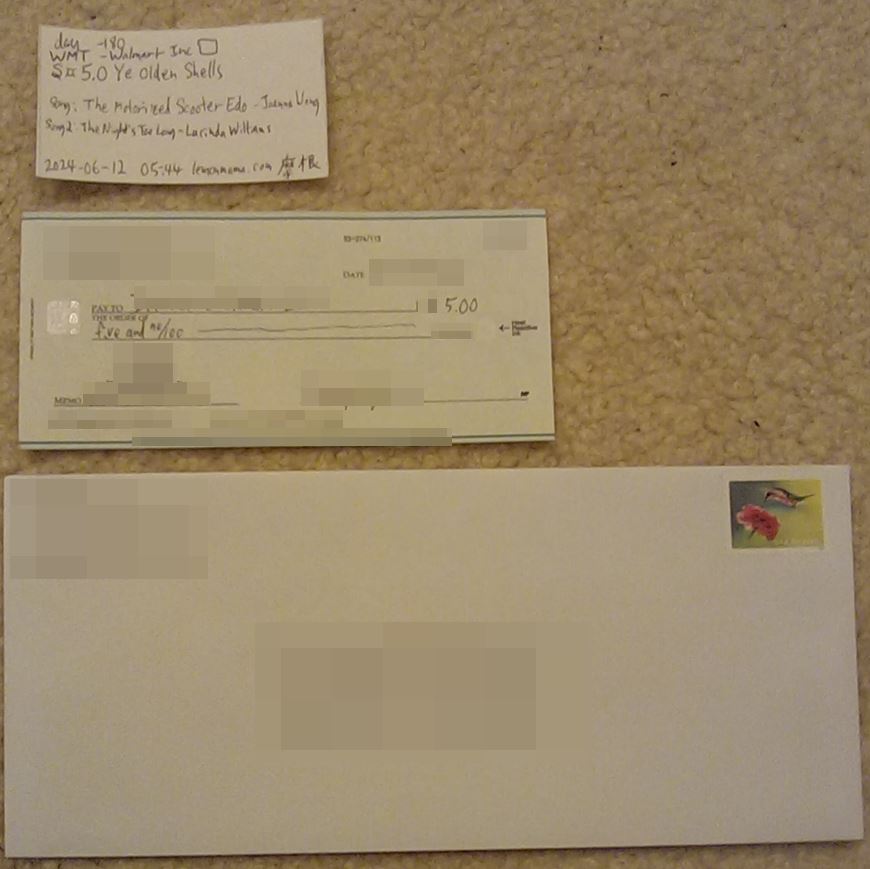 day -180
WMT - Walmart Inc
S¤ 5.0 Ye Olden Shells
Song: The Motorized Scooter Edo - Joanna Wang
Song2: The Night's Too Long - Lucinda Williams
2024-06-12 05:44 lemonmama.com
DATE
PAY TO
THE ORDER OF
5.00
five and no/100
Heat
Sensitive
Ink
MEMO
MP